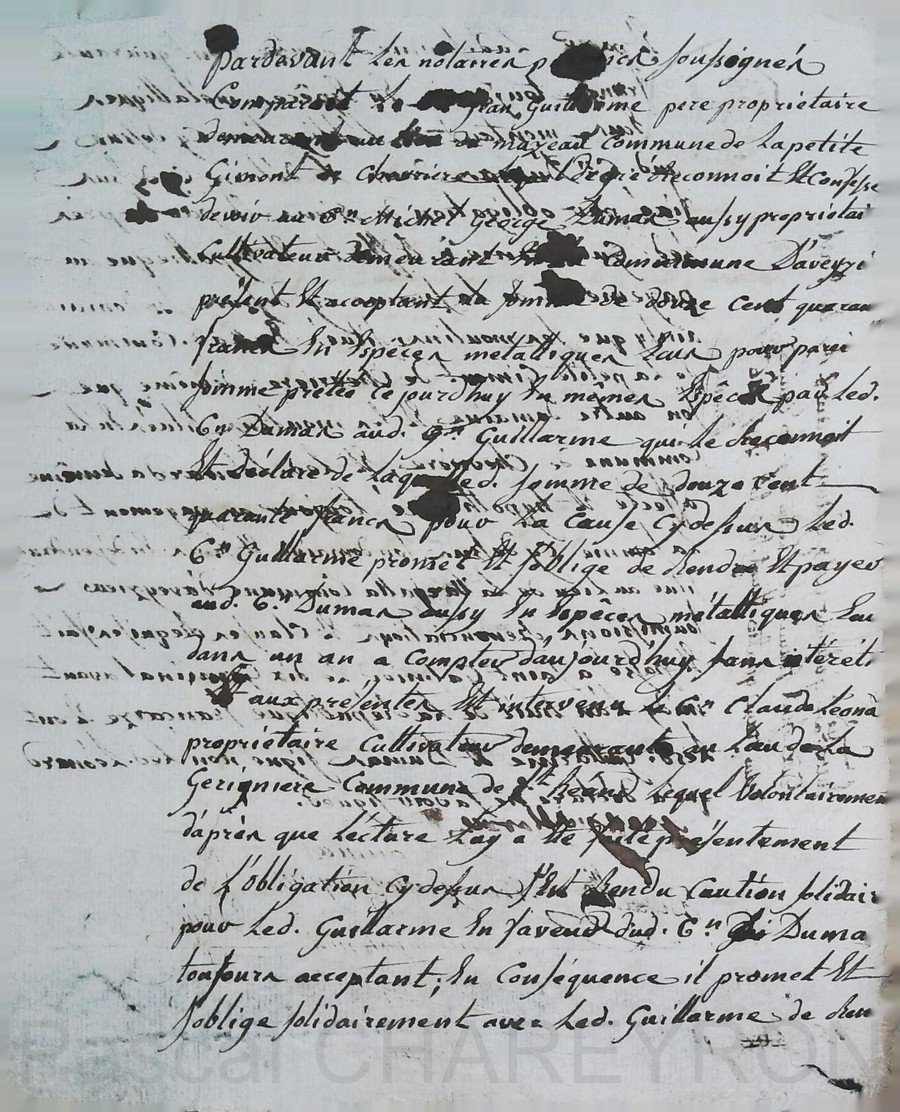 pardevant Les notaires p soussignés
Comparoit Le Jean Guillarme pere propriétaire
mazeau Commune de La petite
Gimont de Chavriere degré Reconnoit Et Confesse
devoir au Cn. Michel George Dumas aussy propriétai
Cultivateur demeurant Commune D'aveyzi
présent Et acceptant La somme de douze Cent quaran
francs En Espèces métalliques pour parei
somme prêtée ce jourdhuy En mêmes Espèces par Led.
Cn. Dumas aud. Cn. Guillarme qui Le Reconnoit
Et déclare de Laquelle d. somme de douze Cent
quarante francs pour La Cause cydessus Led.
Cn. Guillarme promet Et s'oblige de Rendre Et payer
aud. C. Dumas aussy En Espèces métalliques
dans un an a Compter daujourd'huy sans interêt.
aux présentes Est intervenu Le Cn. Claude Leona
propriétaire Cultivateur demeurant au Lau de La
Gerigniere Commune de St. héand Lequel Volontairemen
d'après que Lécture Luy a été faite présentement
de L'obligation Cydessus s'Est Rendu Caution solidair
pour Led. Guillarme En faveur dud. Cn. Duma
toujours acceptant; En Conséquence il promet Et
s'oblige solidairement avec Led. Guillarme de Ren
Pascal CHAREYRON